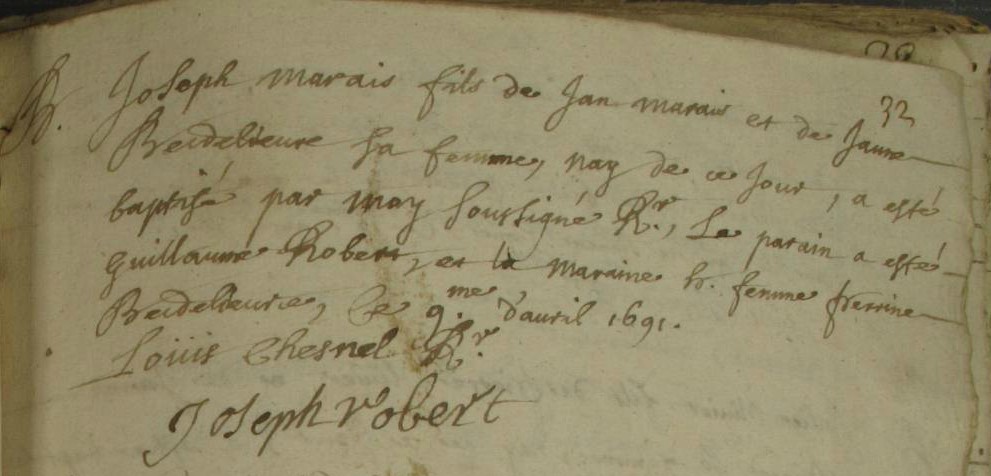 32
B. Joseph marais fils de Jan marais et de Janne
Beidelieure sa femme, nay de ce jour, a esté
baptisé par moy soussigné Rr., Le parain a esté
guillaume Robert, et la maraine h. femme perrine
Beidelieure, Ce 9.me d'auril 1691.
Loüis Chesnel Rr.
Joseph robert